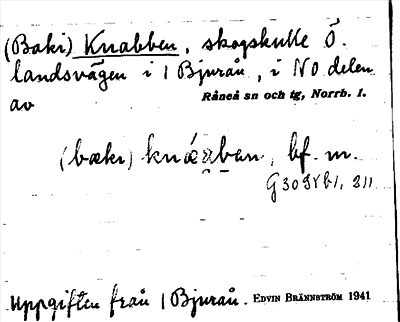 (Baki) Knabben, skogskulle Ö.
landsvägen i 1 Bjurån, i NO delen
av
Råneå sn och tg, Norrb. l.
(bæki) bf. m.
Uppgiften från 1 Bjurån. EDVIN BRÄNNSTRÖM 1941